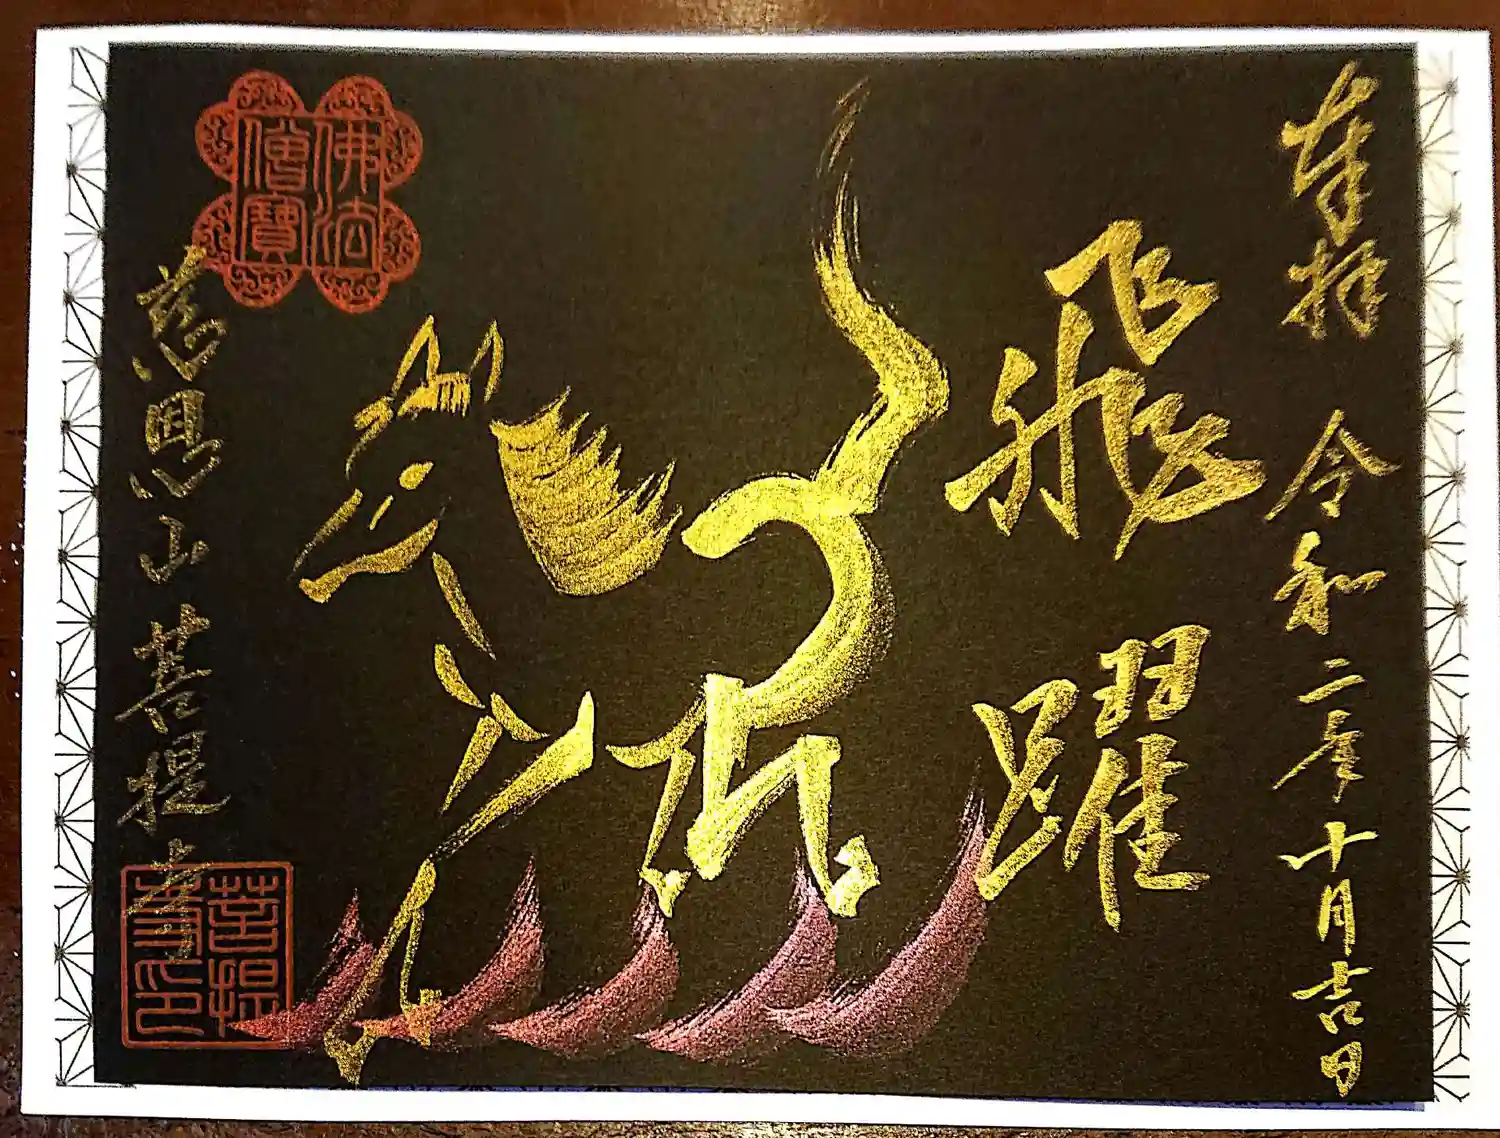 奉拝 令和二年十月吉日
飛躍
佛法
僧寳
慈恩山菩提寺
菩提
寺印